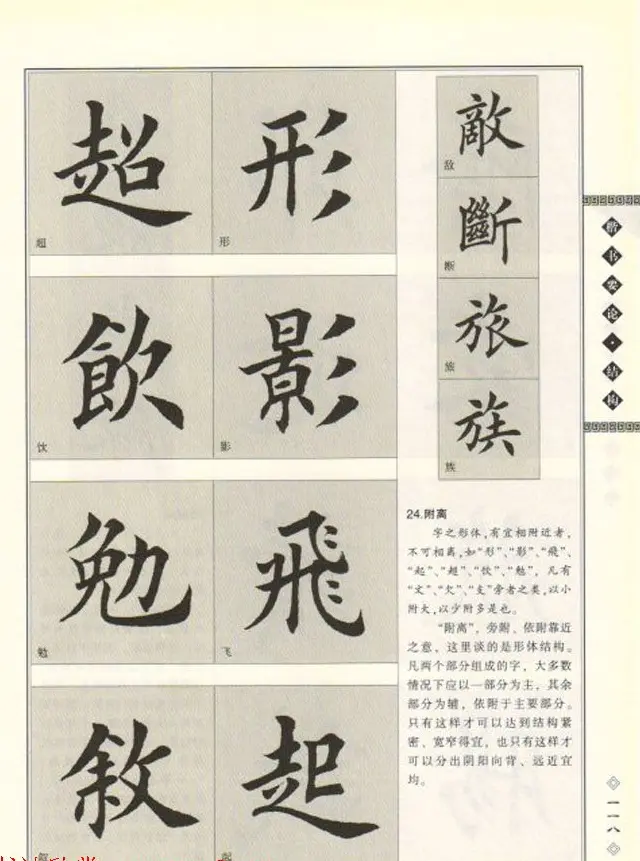 超
超
形
形
敌
敵
断
斷
旅
旅
族
族
饮
飲
影
影
勉
勉
飞
飛
敘
起
楷书要论·结构
24.附离
字之形体,有宜相附近者,
不可相离,如“形”、“影”、“飛”、
“起”、“超”、“饮”、“勉”,凡有
“文”、“欠”、“支”旁者之类,以小
附大,以少附多是也。
“附离”,旁附、依附靠近
之意,这里谈的是形体结构。
凡两个部分组成的字,大多数
情况下应以一部分为主,其余
部分为辅,依附于主要部分。
只有这样才可以达到结构紧
密、宽窄得宜,也只有这样才
可以分出阴阳向背、远近宜
均。
一一八